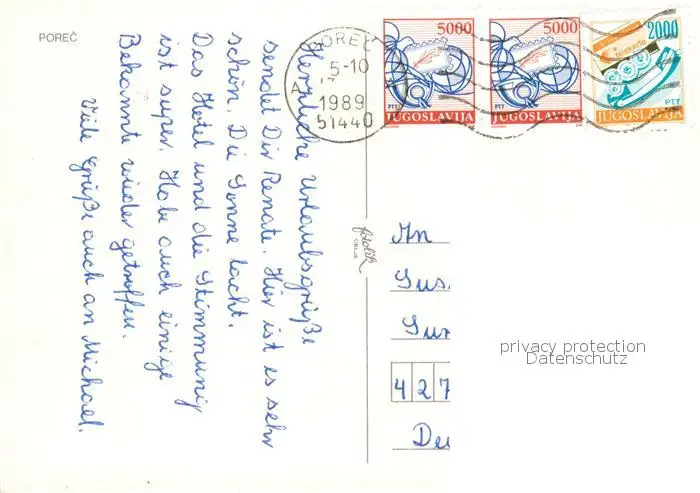 POREČ
Herzliche Urlaubsgrüße
sendet Dir Renate. Hier ist es sehr
schön. Die Sonne lacht.
Das Hotel und die Stimmung
ist super. Habe auch einige
Bekannte wieder getroffen.
Viele Grüße auch an Michael.
POREČ
5-10
A
1989
51440
5000
PTT
JUGOSLAVIJA
5000
PTT
JUGOSLAVIJA
2000
PTT
JUGOSLAVIJA
fotolik
CELJE
An
Sus
Sur
427
Deu
privacy protection
Datenschutz